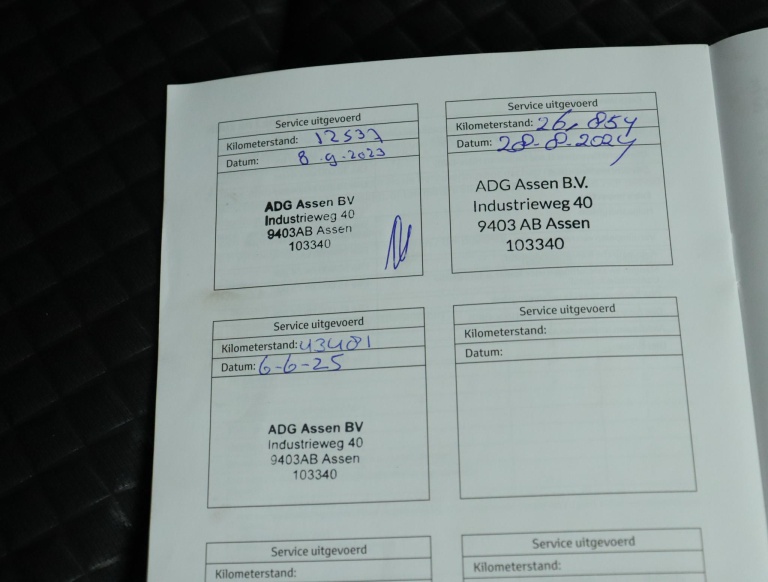 Service uitgevoerd
Kilometerstand: 12537
Datum: 8.9.2023
ADG Assen BV
Industrieweg 40
9403AB Assen
103340
Service uitgevoerd
Kilometerstand: 26,854
Datum: 28-8-2024
ADG Assen B.V.
Industrieweg 40
9403 AB Assen
103340
Service uitgevoerd
Kilometerstand: 43481
Datum: 6-6-25
ADG Assen BV
Industrieweg 40
9403AB Assen
103340
Service uitgevoerd
Kilometerstand:
Datum:
Service uitgevoerd
Kilometerstand:
Service uitgevoerd
Kilometerstand: